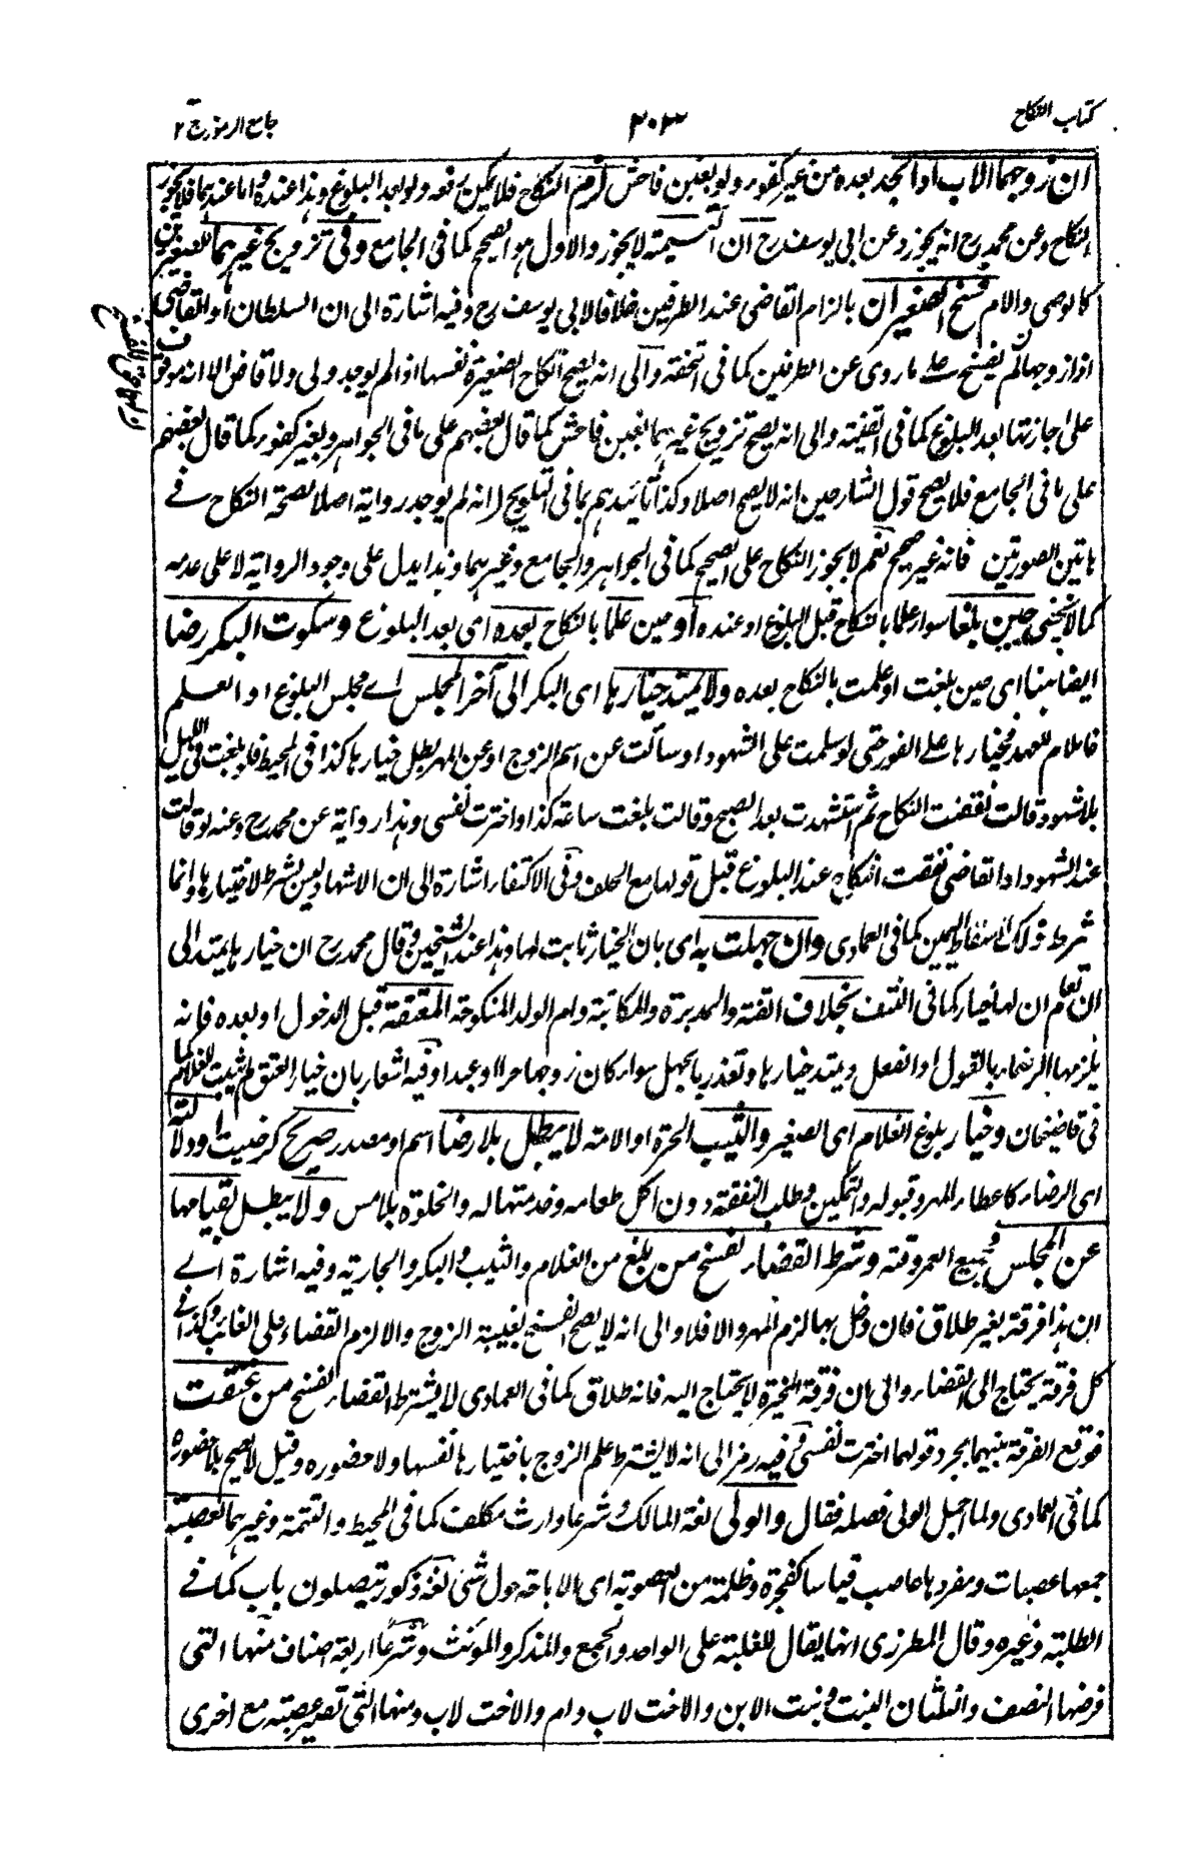 كتاب النكاح
٣٠٣
جامع الرموز ج ٢
ان زوجهما الاب او الجد بعده من غير كفور ولو بغبن فاحش لزم النكاح فلا يمكن رفعه ولو بعد البلوغ وهذا عنده واما عندهما فلا يجوز
النكاح وعن محمد رح انه يجوز وعن ابى يوسف رح ان التسمية لا يجوز والاول هو الصحيح كما فى الجامع وفى تزويج غيرهما للصغيرين
كالوصى والام فسخ الصغيران بالزام القاضى عند الطرفين خلافا لابى يوسف رح وفيه اشارة الى ان السلطان او القاضى
اذا زوجها لم يفسخ على ما روى عن الطرفين كما فى التحفة والى انه يصح انكاح الصغيرة نفسها اذا لم يوجد ولى ولا قاض الا انه موقوف
على اجازتها بعد البلوغ كما فى القنية والى انه يصح تزويج غيرهما بالغبن فاحش كما قال بعضهم على ما فى الجواهر وبغير كفور كما قال بعضهم
على ما فى الجامع فلا يصح قول الشارحين انه لا يصح اصلا وكذا تأئيدهم بما فى التلويح انه لم يوجد رواية اصلا لصحة النكاح فے
هاتين الصورتين فانه غير صحيح نعم لا يجوز النكاح على الصحيح كما فى الجواهر والجامع وغيرهما وهذا يدل على وجود الرواية لا على عدمه
كما لا يخفى حين بلغا سواء علما بالنكاح قبل البلوغ او عنده او حين علما بالنكاح بعده اى بعد البلوغ وسكوت البكر رضا
ايضا هنا اى حين بلغت او علمت بالنكاح بعده ولا يمتد خيارها اى البكر الى آخر المجلس اے مجلس البلوغ او العلم
فاللام للعهد فخيارها على الفور حتى لو سلمت على الشهود او سألت عن اسم الزوج او عن المهر بطل خيارها كذا فى المحيط فلو بلغت فى الليل
بلا شهود قالت نقضت النكاح ثم استشهدت بعد الصبح وقالت بلغت ساعة كذا واخترت نفسى وهذا رواية عن محمد رح وعنه لو قالت
عند الشهود او القاضى نقضت النكاح عند البلوغ قبل قولها مع الحلف وفى الاكتفاء اشارة الى ان الاشهاد ليس بشرط لاختيارها وانما
شرط ذلك لاسقاط اليمين كما فى العمادى وان جهلت به اى بان الخيار ثابت لها وهذا عند الشيخين وقال محمد رح ان خيارها يمتد الى
ان تعلم ان لها خيار كما فى النتف بخلاف المعتقة والمدبرة والمكاتبة وام الولد المنكوحة المعتقة قبل الدخول او بعده فانه
يلزمها الرضاء بالقول او الفعل ويمتد خيارها وتعذر بالجهل سواء كان زوجها حرا او عبدا وفيه اشعار بان خيار العتق لم يثبت للغلام كما
فى قاضيخان وخيار بلوغ الغلام اى الصغير والثيب الحرة او الامة لا يبطل بلا رضا اسم او مصدر صريح كرضيت او دلالة
اى الرضاء كاعطاء المهر وقبوله والتمكين وطلب النفقة دون اكل طعامه وخدمتها له والخلوة بلا مس ولا يبطل بقيامها
عن المجلس وجميع العمر وقته وشرط القضاء لفسخ من بلغ من الغلام والثيب والبكر والجارية وفيه اشارة اے
ان هذا فرقة بغير طلاق فان دخل بها لزم المهر والا فلا والى انه لا يصح الفسخ بغيبة الزوج والا لزم القضاء على الغائب وكذا فے
كل فرقة يحتاج الى القضاء والى ان فرقة المخيرة لا يحتاج اليه فانه طلاق كما فى العمادى لا يشترط القضاء لفسخ من عتقت
فوقع الفرقة بينهما بمجرد قولها اخترت نفسى وفيه رمز الى انه لا يشترط علم الزوج باختيارها نفسها ولا حضوره وقيل لا يصح بلا حضوره
كما فى العمادى ولما اجمل الولى فصله فقال والولى لغة المالك وشرعا وارث مكلف كما فى المحيط والتتمة وغيرهما العصبة
جمعها عصبات ومفردها عاصب قياسا كفجرة وظلمة من العصوبة اى الاباحة حول شئ لغة ذكور يتصلون باب كما فے
الطلبة وغيره وقال المطرزى انها يقال للغلبة على الواحد والجمع والمذكر والمونث وشرعا اربعة اصناف منها التى
فرضها النصف والثلثان البنت وبنت الابن والاخت لاب وام والاخت لاب ومنها التى تصير عصبة مع اخرى